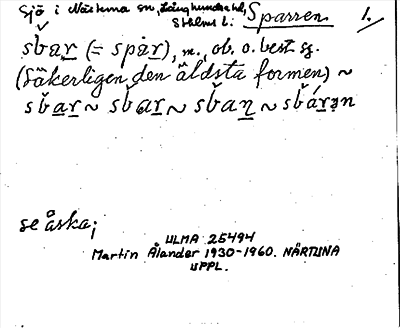 Sjö i Närtuna sn, Långhundra hd,
Sthlms l: Sparren. 1.
sbar (= spar), m., ob. o. best. sg.
(säkerligen den äldsta formen) ~
sbar ~ sbar ~ sban ~ sbárən
se åska;
ULMA 25494
Martin Ålander 1930-1960. NÄRTUNA
UPPL.